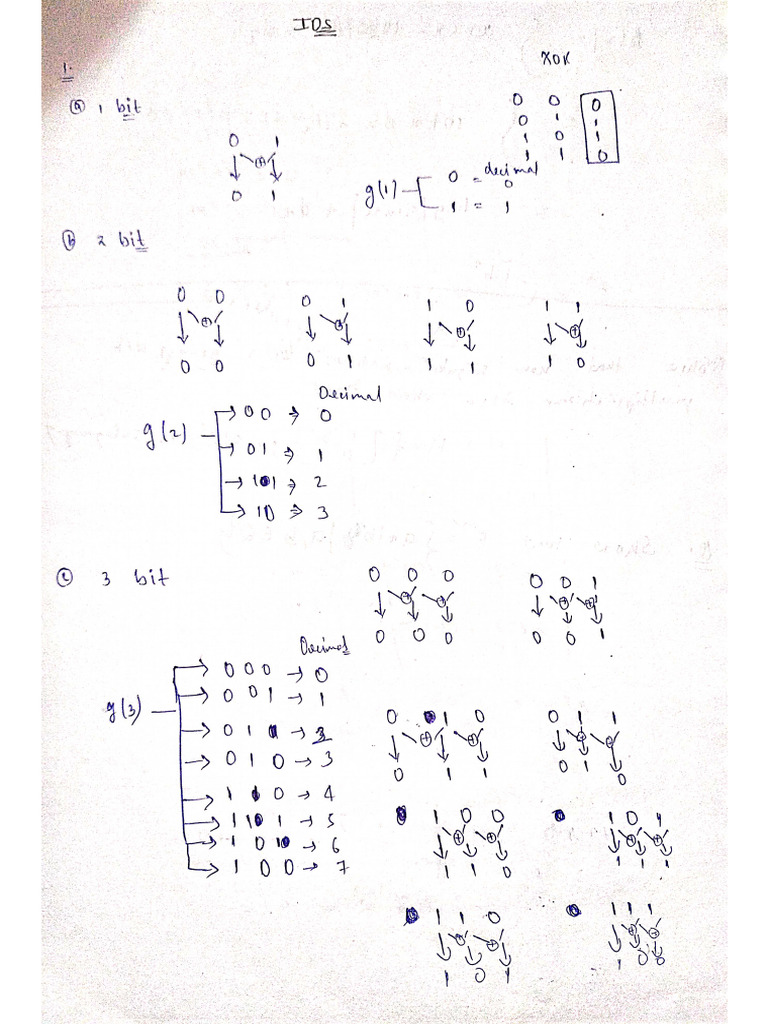 IOS
XOR
1.
0 0 0
0 1 1
1 0 1
1 1 0
(a) 1 bit
0 1
⊕
0 1
g(1)
decimal
0 = 0
1 = 1
(b) 2 bit
0 0
⊕
0 0
0 1
⊕
0 1
1 0
⊕
1 1
1 1
⊕
1 0
Decimal
g(2)
→ 00 ⇒ 0
→ 01 ⇒ 1
→ 11 ⇒ 2
→ 10 ⇒ 3
(c) 3 bit
0 0 0
⊕ ⊕
0 0 0
0 0 1
⊕ ⊕
0 0 1
Decimal
g(3)
→ 0 0 0 → 0
→ 0 0 1 → 1
→ 0 1 1 → 2
→ 0 1 0 → 3
→ 1 1 0 → 4
→ 1 1 1 → 5
→ 1 0 1 → 6
→ 1 0 0 → 7
0 1 0
⊕ ⊕
0 1 1
0 1 1
⊕ ⊕
0 1 0
1 0 0
⊕ ⊕
1 1 0
1 0 1
⊕ ⊕
1 1 1
1 1 0
⊕ ⊕
1 0 1
1 1 1
⊕ ⊕
1 0 0